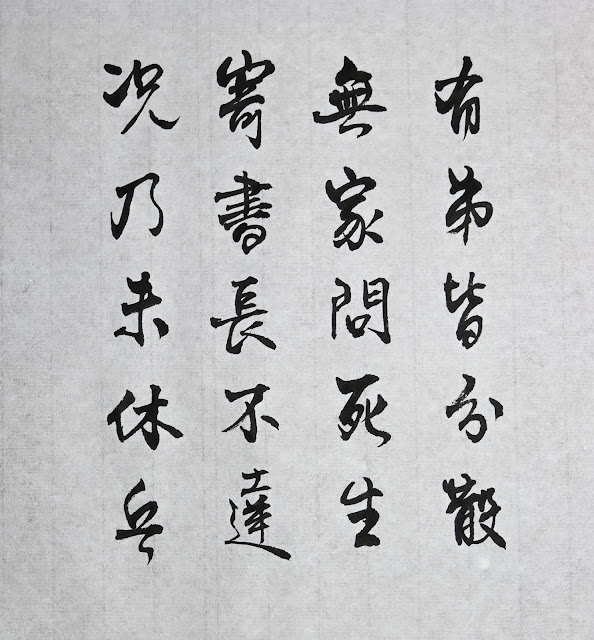 有弟皆分散
無家問死生
寄書長不達
況乃未休兵